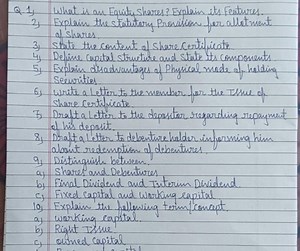 Q.1, What is an Equity Shares? Explain its Features.
2, Explain the Statutory Provision for allotment
of shares
3, State the content of Share Certificate
4, Define capital structure and State its components
5, Explain disadvantages of Physical mode of holding
Securities
6, Write a Letter to the member for the Issue of
Share Certificate
7, Draft a Letter to the depositor regarding repayment
of his deposit.
8, Draft a Letter to debenture holder informing him
about redemption of debentures.
9, Distinguish between
a, Shares and Debentures
b, Final Dividend and Interim Dividend
c, Fixed capital and working capital
10, Explain the following term/concept
a, working capital
b, Right Issue
c, owned capital